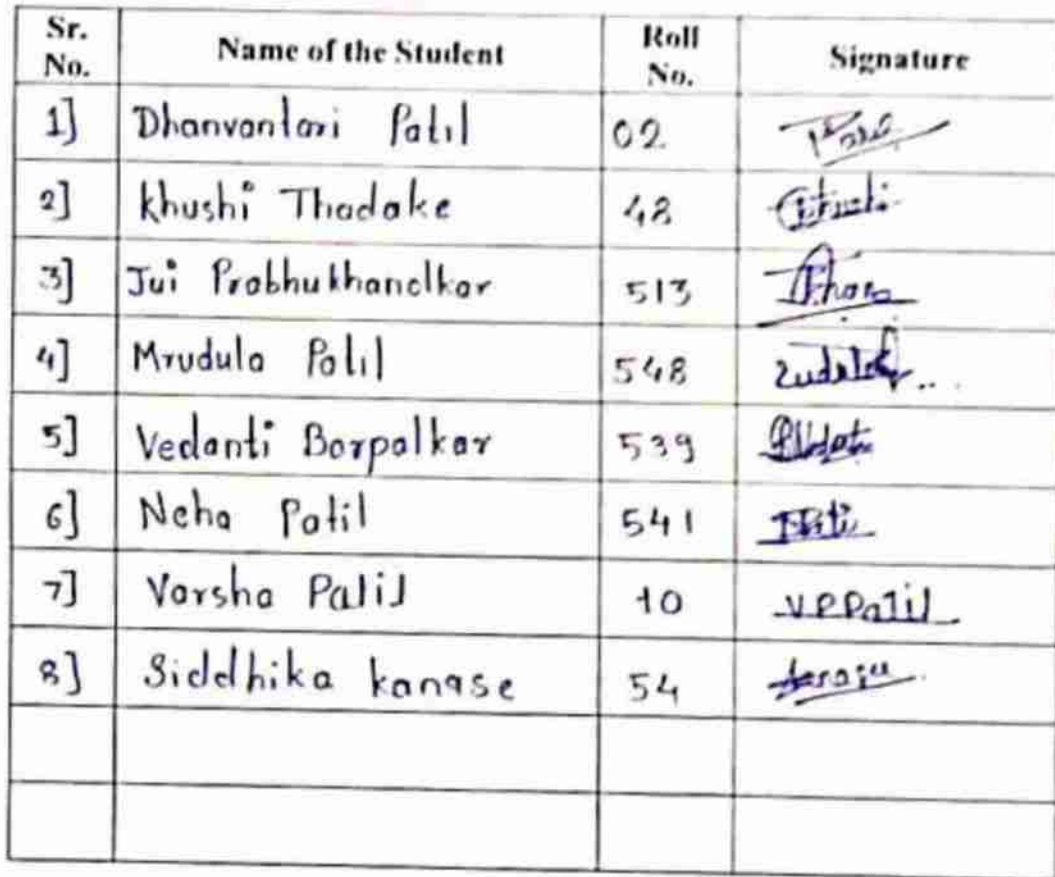 Sr. No. Name of the Student Roll No. Signature
1] Dhanvantari Patil 02
2] Khushi Thadake 48
3] Jui Prabhukhandkar 513
4] Mrudula Patil 548
5] Vedanti Borpalkar 539
6] Neha Patil 541
7] Varsha Patil 10 V.P.Patil
8] Siddhika kanase 54